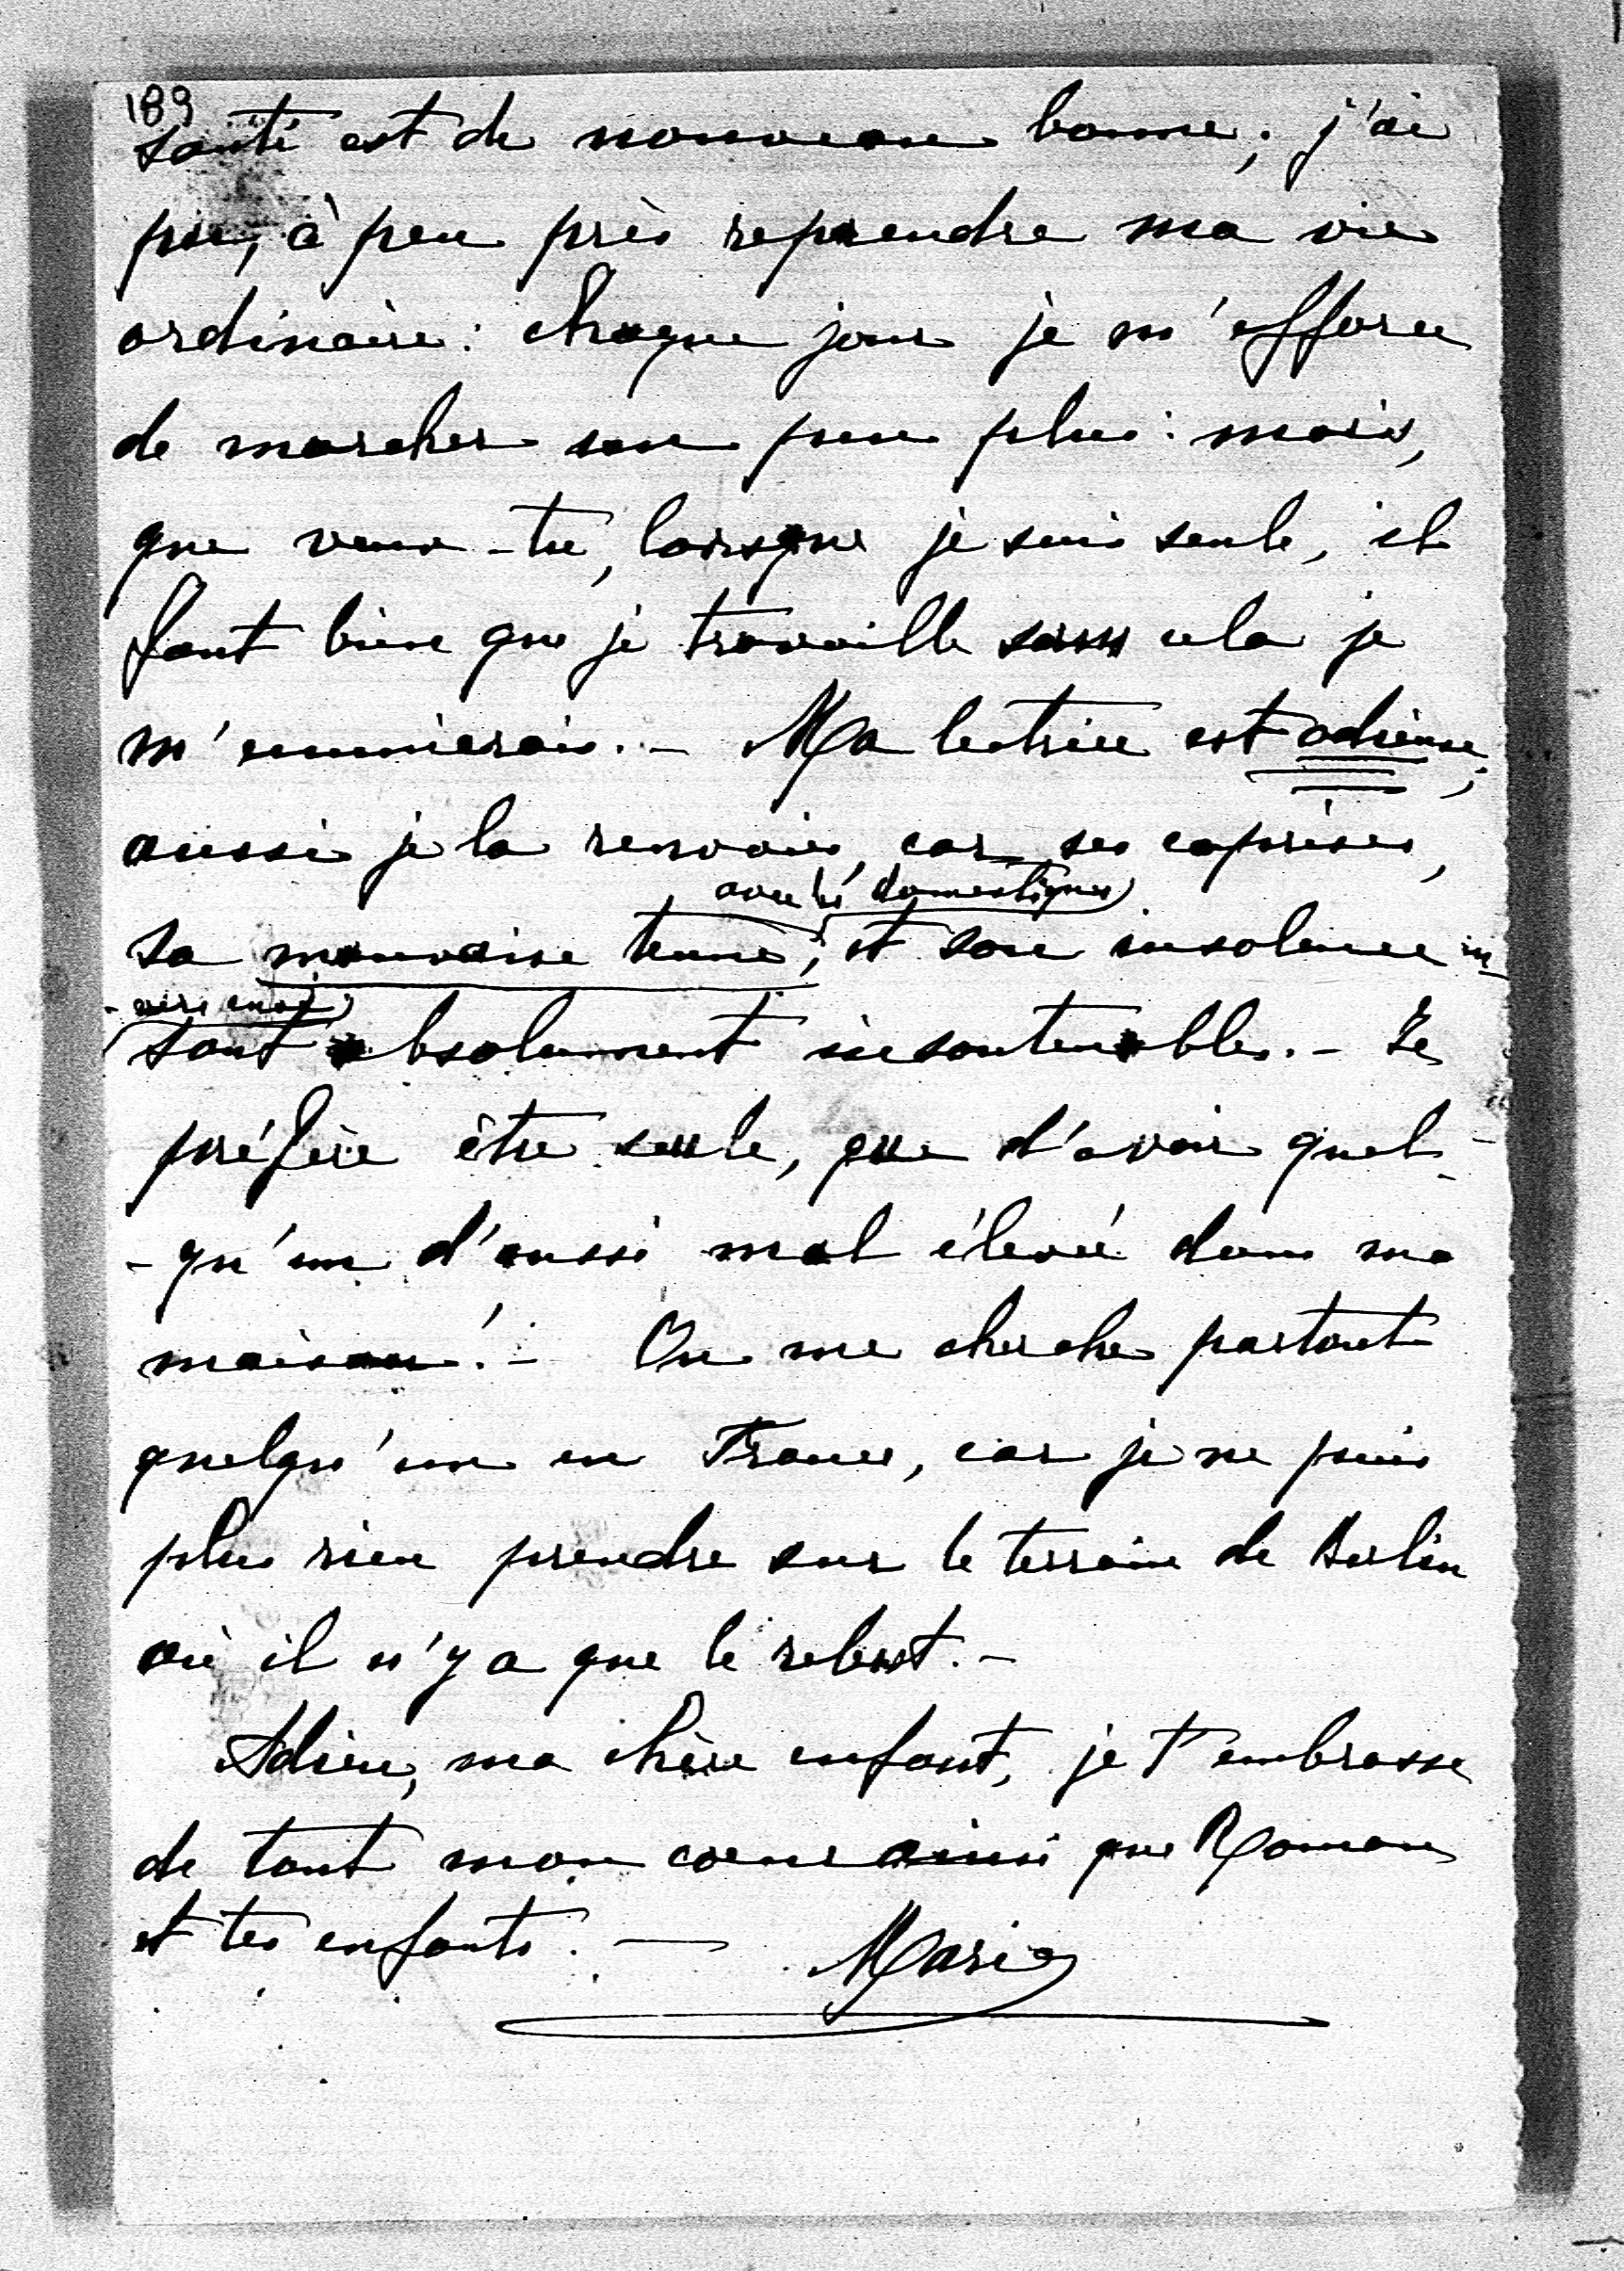 189
santé est de nouveau bonne; j'ai
pu, à peu près reprendre ma vie
ordinaire: chaque jour je m'efforce
de marcher un peu plus: mais,
que veux-tu, lorsque je suis seule, il
faut bien que je travaille sans cela je
m'ennuierais. - Ma lectrice est odieuse;
aussi je la renvoie, car ses caprices,
avec les domestiques
sa mauvaise tenue, et son insolence en-
-vers moi
sont absolument insoutenables. - Je
préfère être seule, que d'avoir quel-
-qu'un d'aussi mal élevé dans ma
maison! - On me cherche partout
quelqu'un en France, car je ne puis
plus rien prendre sur le terrain de Berlin
où il n'y a que le rebut. -
Adieu, ma chère enfant, je t'embrasse
de tout mon cœur ainsi que Roman
et tes enfants. - Marie